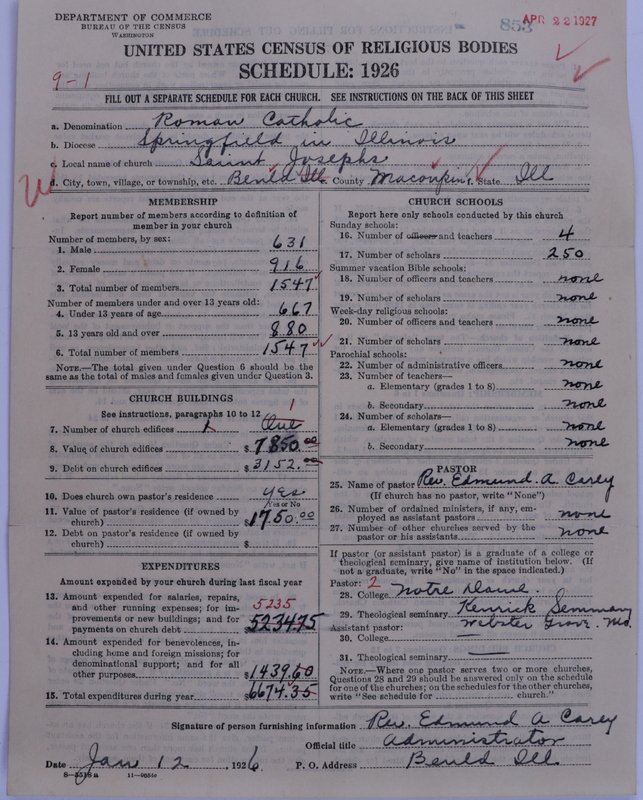 DEPARTMENT OF COMMERCE
BUREAU OF THE CENSUS
WASHINGTON
853 APR 22 1927
UNITED STATES CENSUS OF RELIGIOUS BODIES
SCHEDULE: 1926
9-1
FILL OUT A SEPARATE SCHEDULE FOR EACH CHURCH. SEE INSTRUCTIONS ON THE BACK OF THIS SHEET
a. Denomination Roman Catholic
b. Diocese Springfield in Illinois
c. Local name of church Saint Josephs
d. City, town, village, or township, etc. Benld Ill e. County Macoupin f. State Ill
MEMBERSHIP
Report number of members according to definition of
member in your church
Number of members, by sex:
1. Male 631
2. Female 916
3. Total number of members 1547
Number of members under and over 13 years old:
4. Under 13 years of age 667
5. 13 years old and over 880
6. Total number of members 1547
NOTE.—The total given under Question 6 should be
same as the total of males and females given under Question 3.
CHURCH BUILDINGS
See instructions, paragraphs 10 to 12 1
7. Number of church edifices 1 One
8. Value of church edifices $ 7850.00
9. Debt on church edifices $ 3152.00
10. Does church own pastor's residence yes
Yes or No
11. Value of pastor's residence (if owned by
church) $ 1750.00
12. Debt on pastor's residence (if owned by
church) $
EXPENDITURES
Amount expended by your church during last fiscal year
13. Amount expended for salaries, repairs,
and other running expenses; for im- 5235
provements or new buildings; and for
payments on church debt 5234.75
14. Amount expended for benevolences,
including home and foreign missions; for
denominational support; and for all
other purposes $ 1439.60
15. Total expenditures during year $ 6674.35
CHURCH SCHOOLS
Report here only schools conducted by this church
Sunday schools:
16. Number of officers and teachers 4
17. Number of scholars 250
Summer vacation Bible schools:
18. Number of officers and teachers none
19. Number of scholars none
Week-day religious schools:
20. Number of officers and teachers none
21. Number of scholars none
Parochial schools:
22. Number of administrative officers none
23. Number of teachers—
a. Elementary (grades 1 to 8) none
b. Secondary none
24. Number of scholars—
a. Elementary (grades 1 to 8) none
b. Secondary none
PASTOR
25. Name of pastor Rev. Edmund. A. Carey
(If church has no pastor, write "None")
26. Number of ordained ministers, if any, em-
ployed as assistant pastors none
27. Number of other churches served by the
pastor or his assistants none
If pastor (or assistant pastor) is a graduate of a college or
theological seminary, give name of institution below. (If
not a graduate, write "No" in the space indicated.)
Pastor: 2
28. College Notre Dame.
29. Theological seminary Kenrick Seminary
Assistant pastor: Webster Grove. Mo.
30. College —
31. Theological seminary —
NOTE.—Where one pastor serves two or more churches,
Questions 28 and 29 should be answered only on the schedule
for one of the churches; on the schedules for the other churches,
write "See schedule for church."
Signature of person furnishing information Rev. Edmund A Carey
Official title Administrator
Date Jan 12, 1926 P. O. Address Benld Ill
8—5518 a